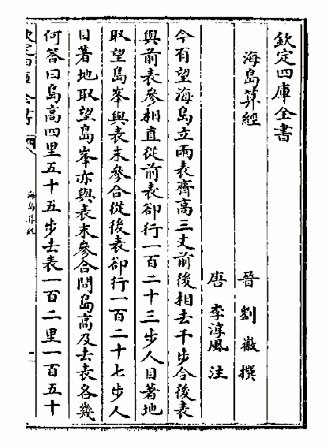 欽定四庫全書
海島算經
晉 劉徽 撰
唐 李淳風 注
今有望海島立兩表齊高三丈前後相去千步令後表
與前表參相直從前表卻行一百二十三步人目著地
取望島峯與表末參合從後表卻行一百二十七步人
目著地取望島峯亦與表末參合問島高及去表各幾
何答曰島高四里五十五步去表一百二里一百五十
欽定四庫全書
海島算經
一